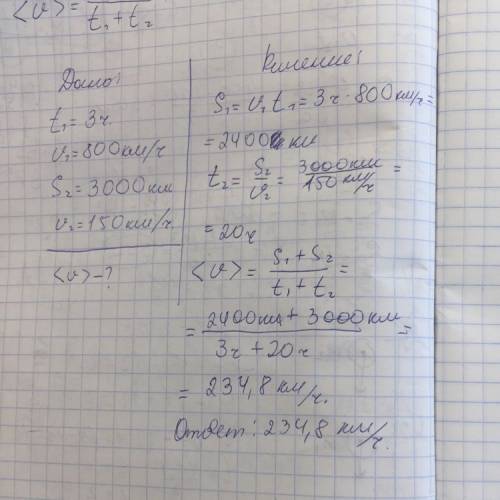 <v> = 
t₁ + t₂
Дано:
t₁ = 3ч.
v₁ = 800км/ч
S₂ = 3000км
v₂ = 150км/ч.
<v> - ?
Решение:
S₁ = v₁ t₁ = 3ч · 800км/ч =
= 2400 км
t₂ = S₂/v₂ = 3000км/150 км/ч =
= 20ч
<v> = (S₁ + S₂)/(t₁ + t₂) =
= (2400км + 3000км)/(3ч + 20ч) =
= 234,8 км/ч.
Ответ: 234,8 км/ч.